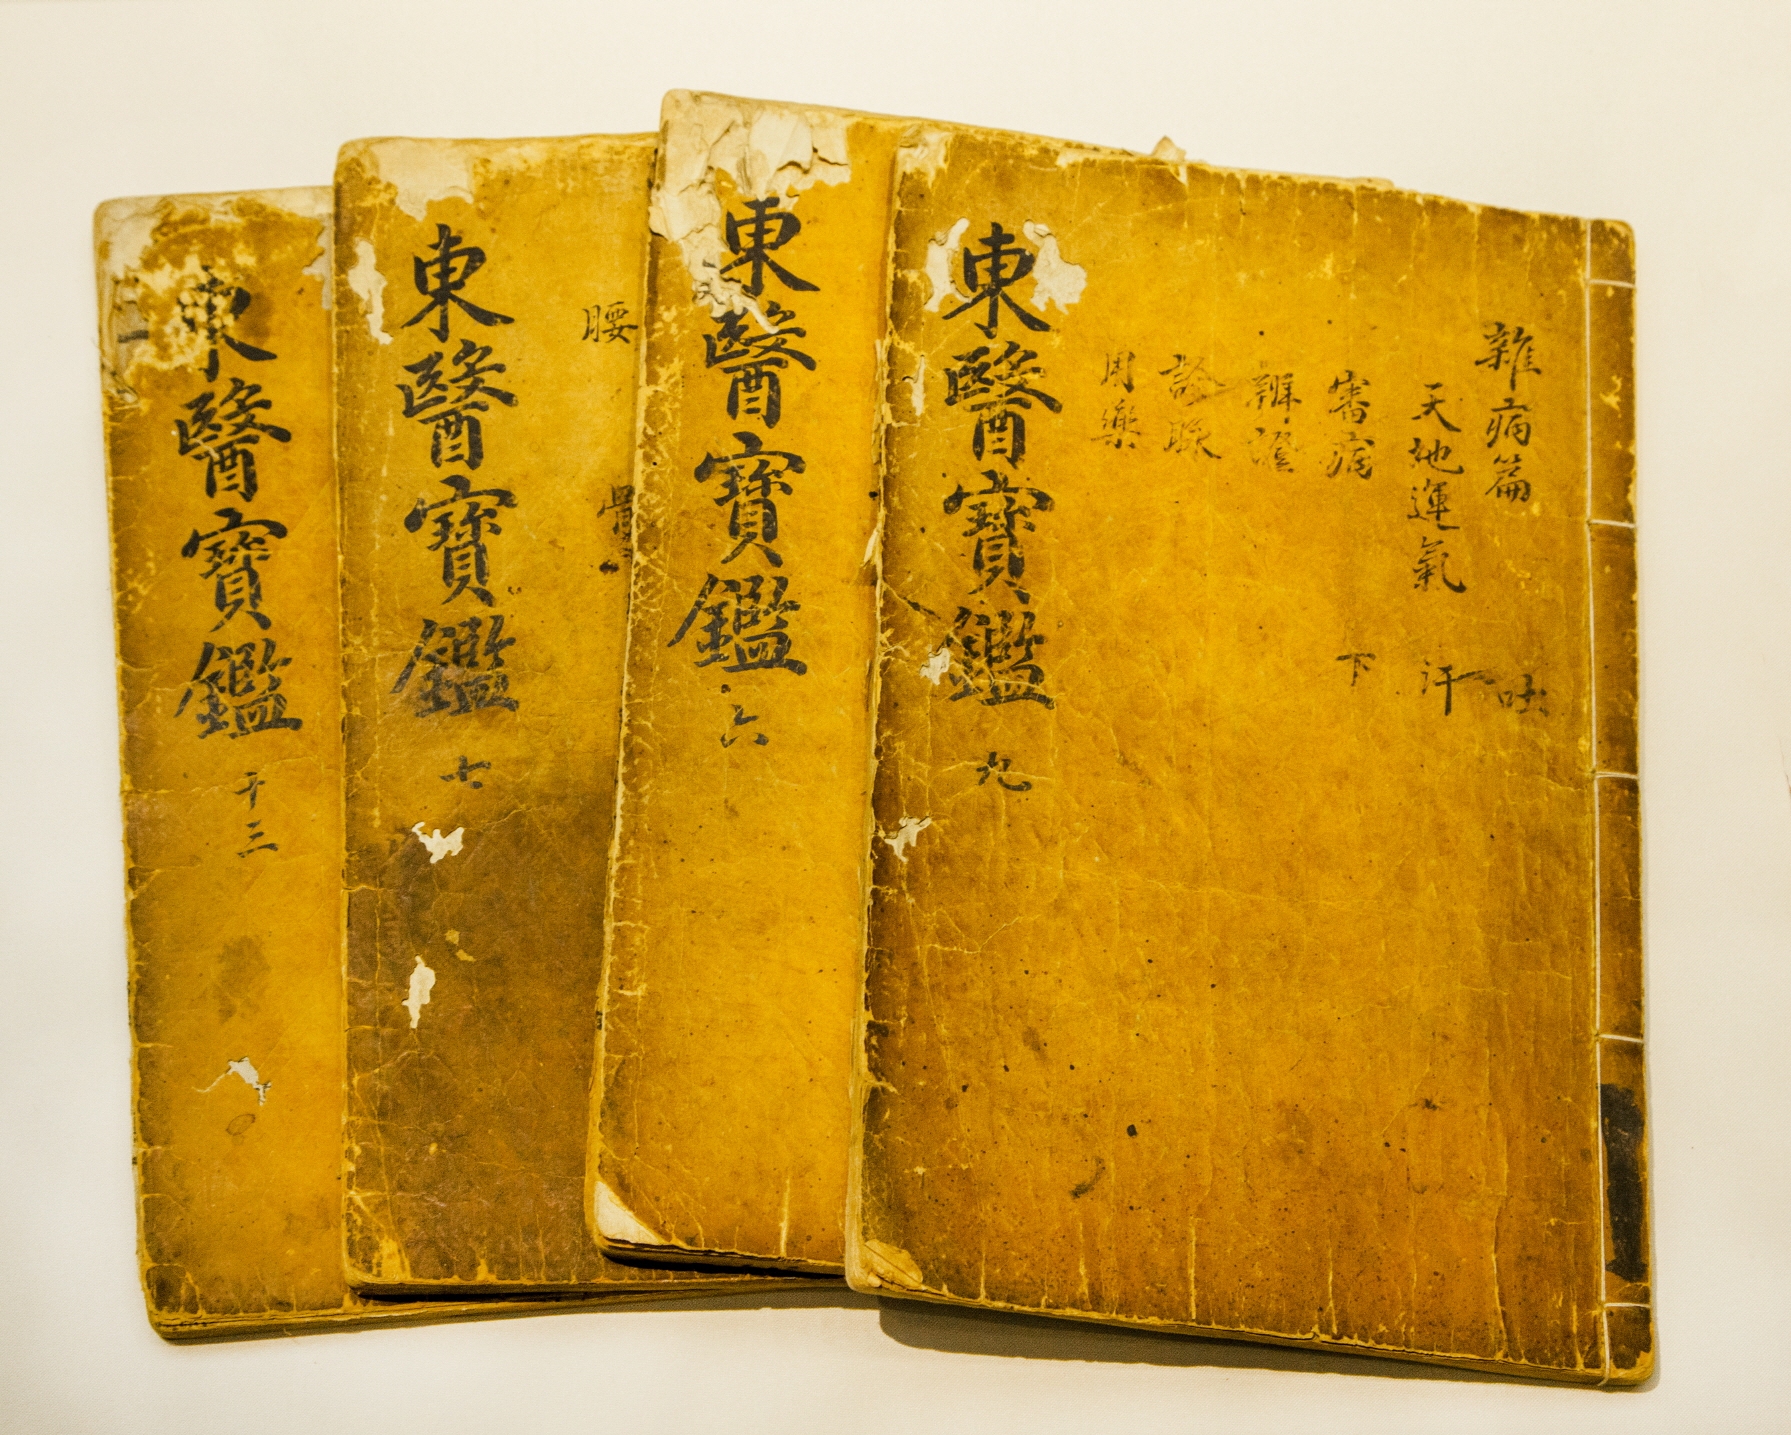 雜病篇 吐
天地運氣 汗
審病 下
辨證
診脈
用藥
東醫寶鑑 九
東醫寶鑑 六
腰
骨
東醫寶鑑 七
東醫寶鑑 十三